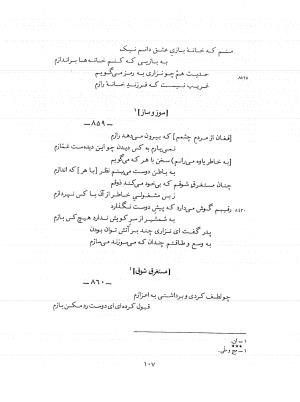 منم که خانهٔ بازی عشق دانم نیک
به بازیی که کنم خانه‌ها براندازم
۸۴۱۵
حدیث همّ چو نزاری به رمز می‌گویم
غریب نیست که فرزندِ خانهٔ رازم
[سوز و ساز]۱
ــ۸۵۹ــ
[فغان از مردم چشمم] که بیرون می‌دهد رازم
نمی‌یارم به کس دیدن چو این دیده‌ست غمّازم
[به خاطر یاوه می‌رانم] سخن با هر که می‌گویم
به باطن دوست می‌بینم نظر [با هر] که اندازم
چنان مستغرق شوقم که بی‌خود می‌کند ذوقم
ز بس مشغولی خاطر از آن با کس نپردازم
۸۴۲۰
رقیبم گوش می‌دارد که پیش دوست نگذارد
به شمشیر از سر کویش ندارد هیچ کس بازم
پدر گفت ای نزاری چند بر آتش توان بودن
به وسع و طاقتم چندان که می‌سوزند می‌سازم
[مستغرق شوق]۱
ــ۸۶۰ــ
چو لطف کردی و برداشتی به اعزازم
قبول کرده‌ای ای دوست رد مکن بازم
۱ ــ ان.
***
۱ ــ مج و ملی.
۱۰۷